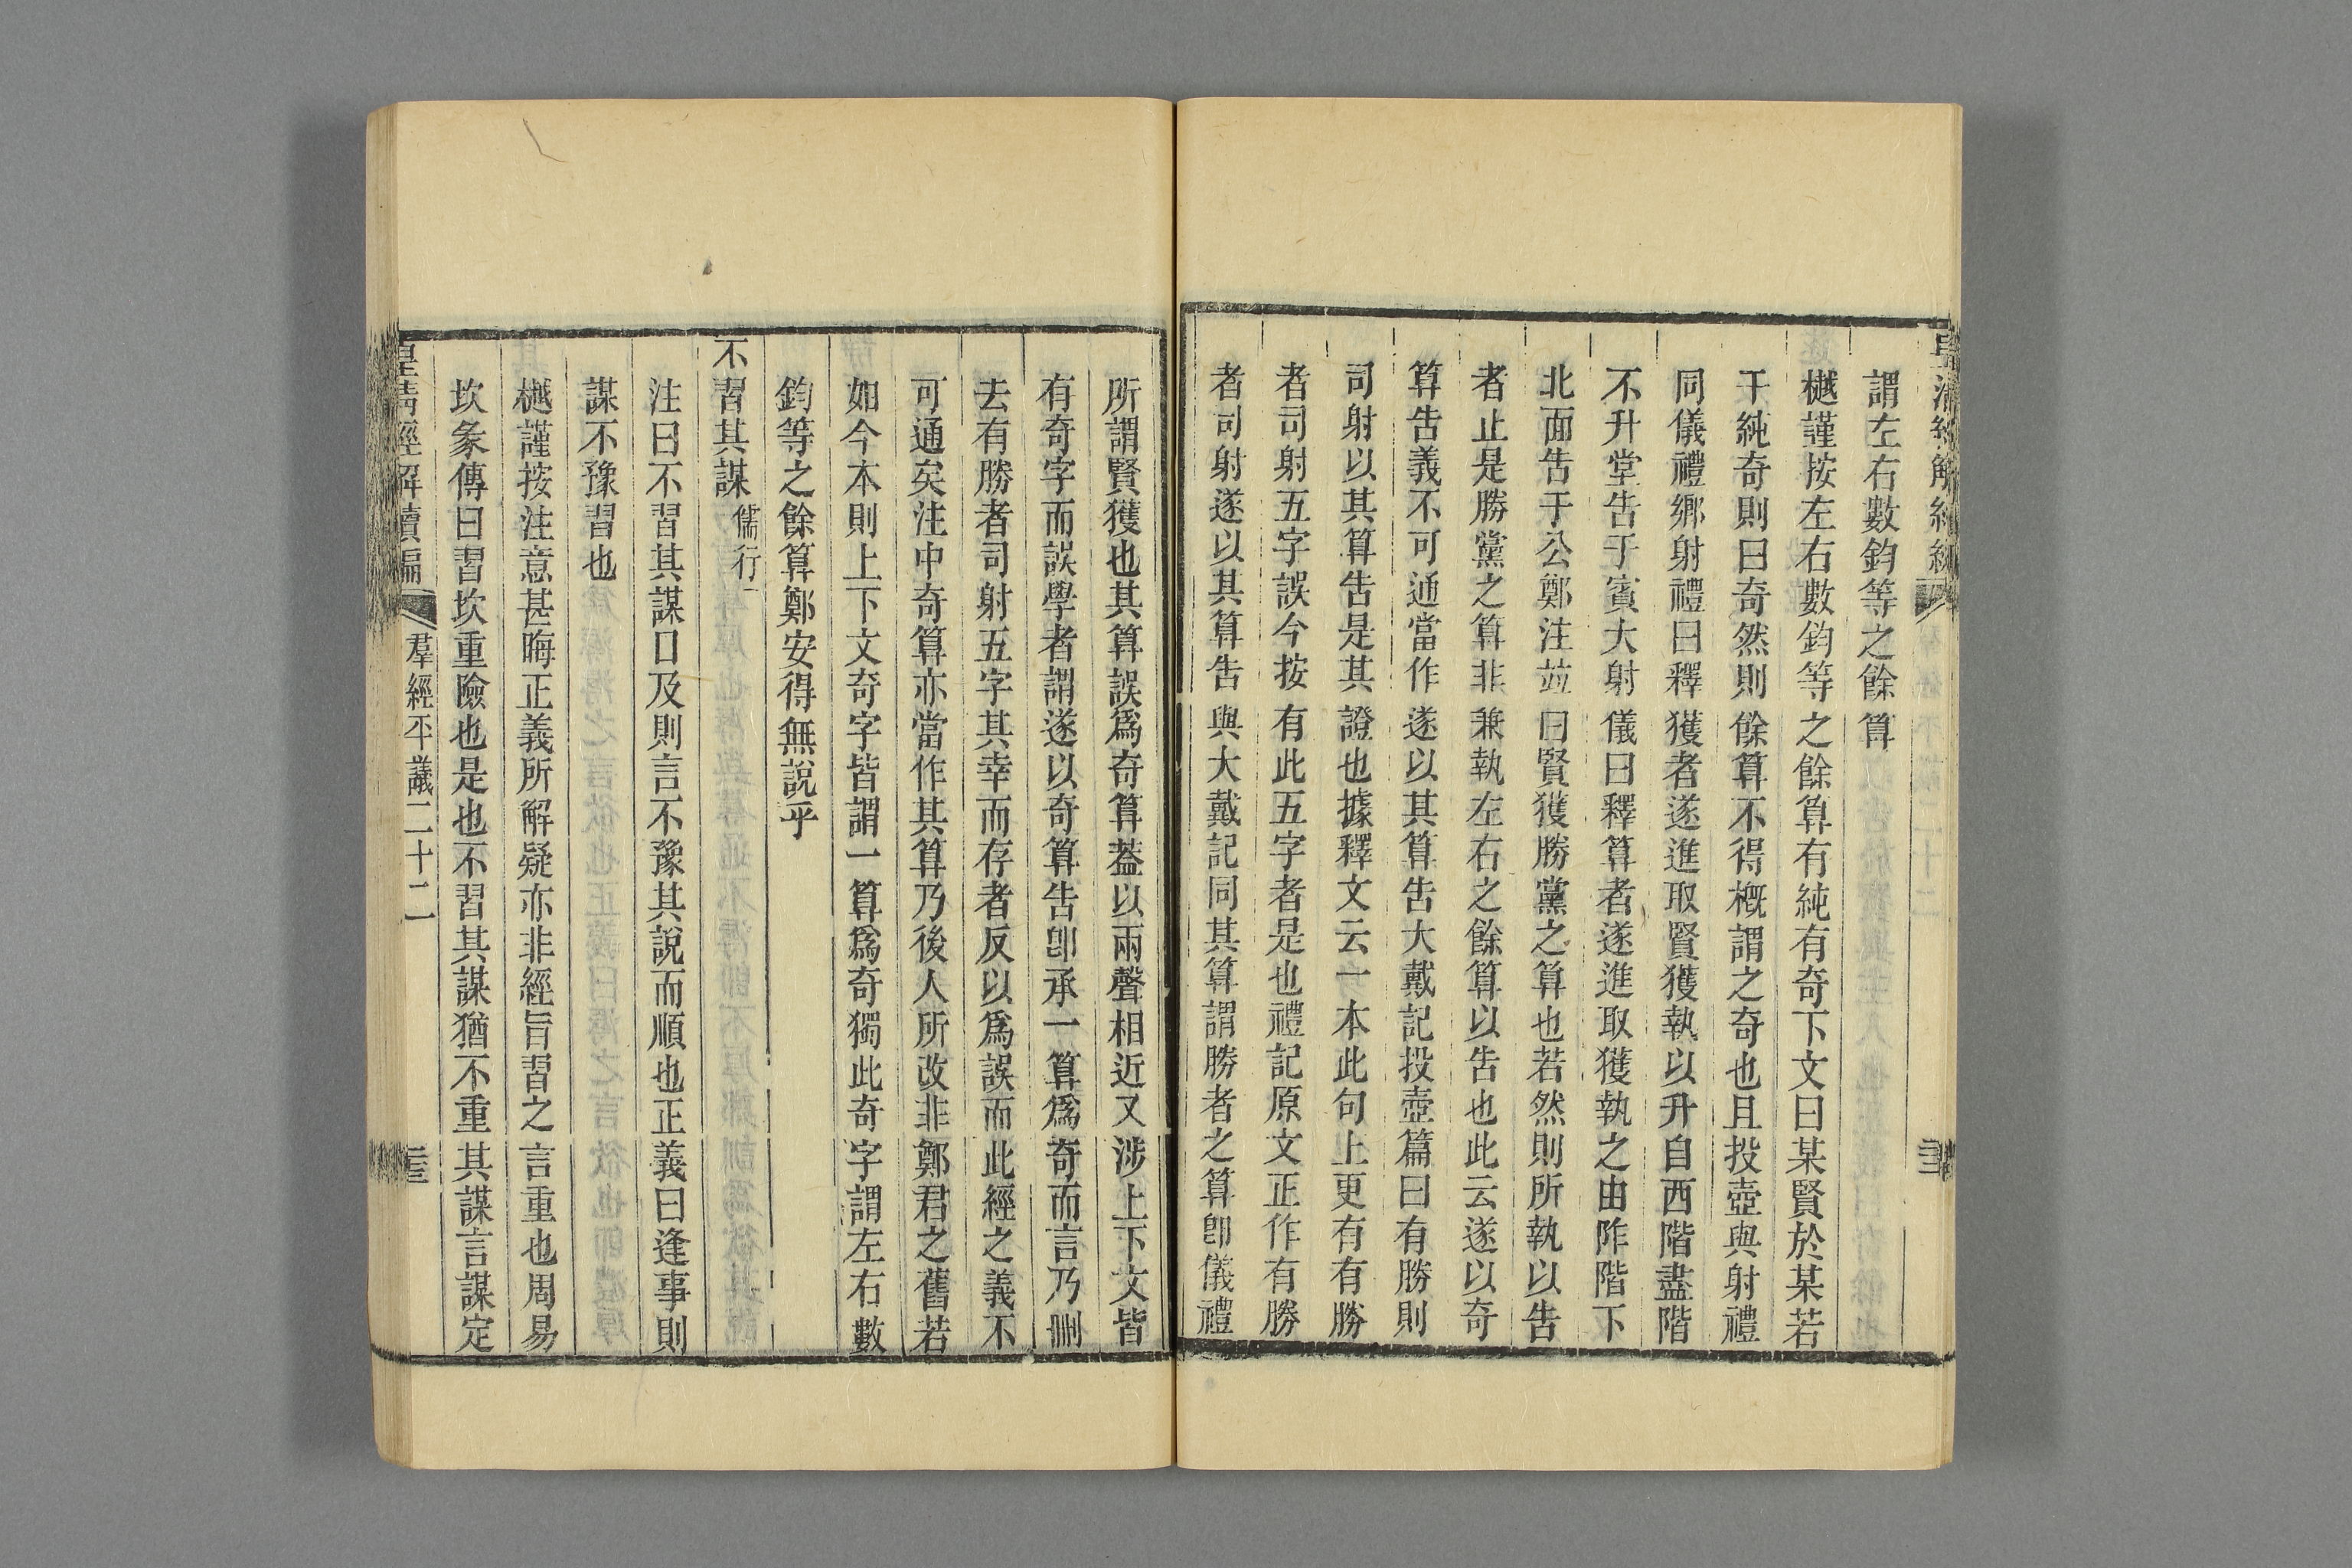 謂左右數鈞等之餘算
樾謹按左右數鈞等之餘算有純有奇下文曰某賢於某若
干純奇則曰奇然則餘算不得槪謂之奇也且投壺與射禮
同儀禮鄉射禮曰釋獲者遂進取賢獲執以升自西階盡階
不升堂告于賓大射儀曰釋算者遂進取獲執之由阼階下
北面告于公鄭注竝曰賢獲勝黨之算也若然則所執以告
者止是勝黨之算非兼執左右之餘算以告也此云遂以奇
算告義不可通當作遂以其算告大戴記投壺篇曰有勝則
司射以其算告是其證也據釋文云一本此句上更有有勝
者司射五字誤今按有此五字者是也禮記原文正作有勝
者司射遂以其算告與大戴記同其算謂勝者之算卽儀禮
所謂賢獲也其算誤爲奇算葢以兩聲相近又涉上下文皆
有奇字而誤學者謂遂以奇算告卽承一算爲奇而言乃刪
去有勝者司射五字其幸而存者反以爲誤而此經之義不
可通矣注中奇算亦當作其算乃後人所改非鄭君之舊若
如今本則上下文奇字皆謂一算爲奇獨此奇字謂左右數
鈞等之餘算鄭安得無說乎
不習其謀儒行
注曰不習其謀口及則言不豫其說而順也正義曰逢事則
謀不豫習也
樾謹按注意甚晦正義所解疑亦非經旨習之言重也周易
坎彖傳曰習坎重險也是也不習其謀猶不重其謀言謀定
皇淸經解續編 羣經平議二十二